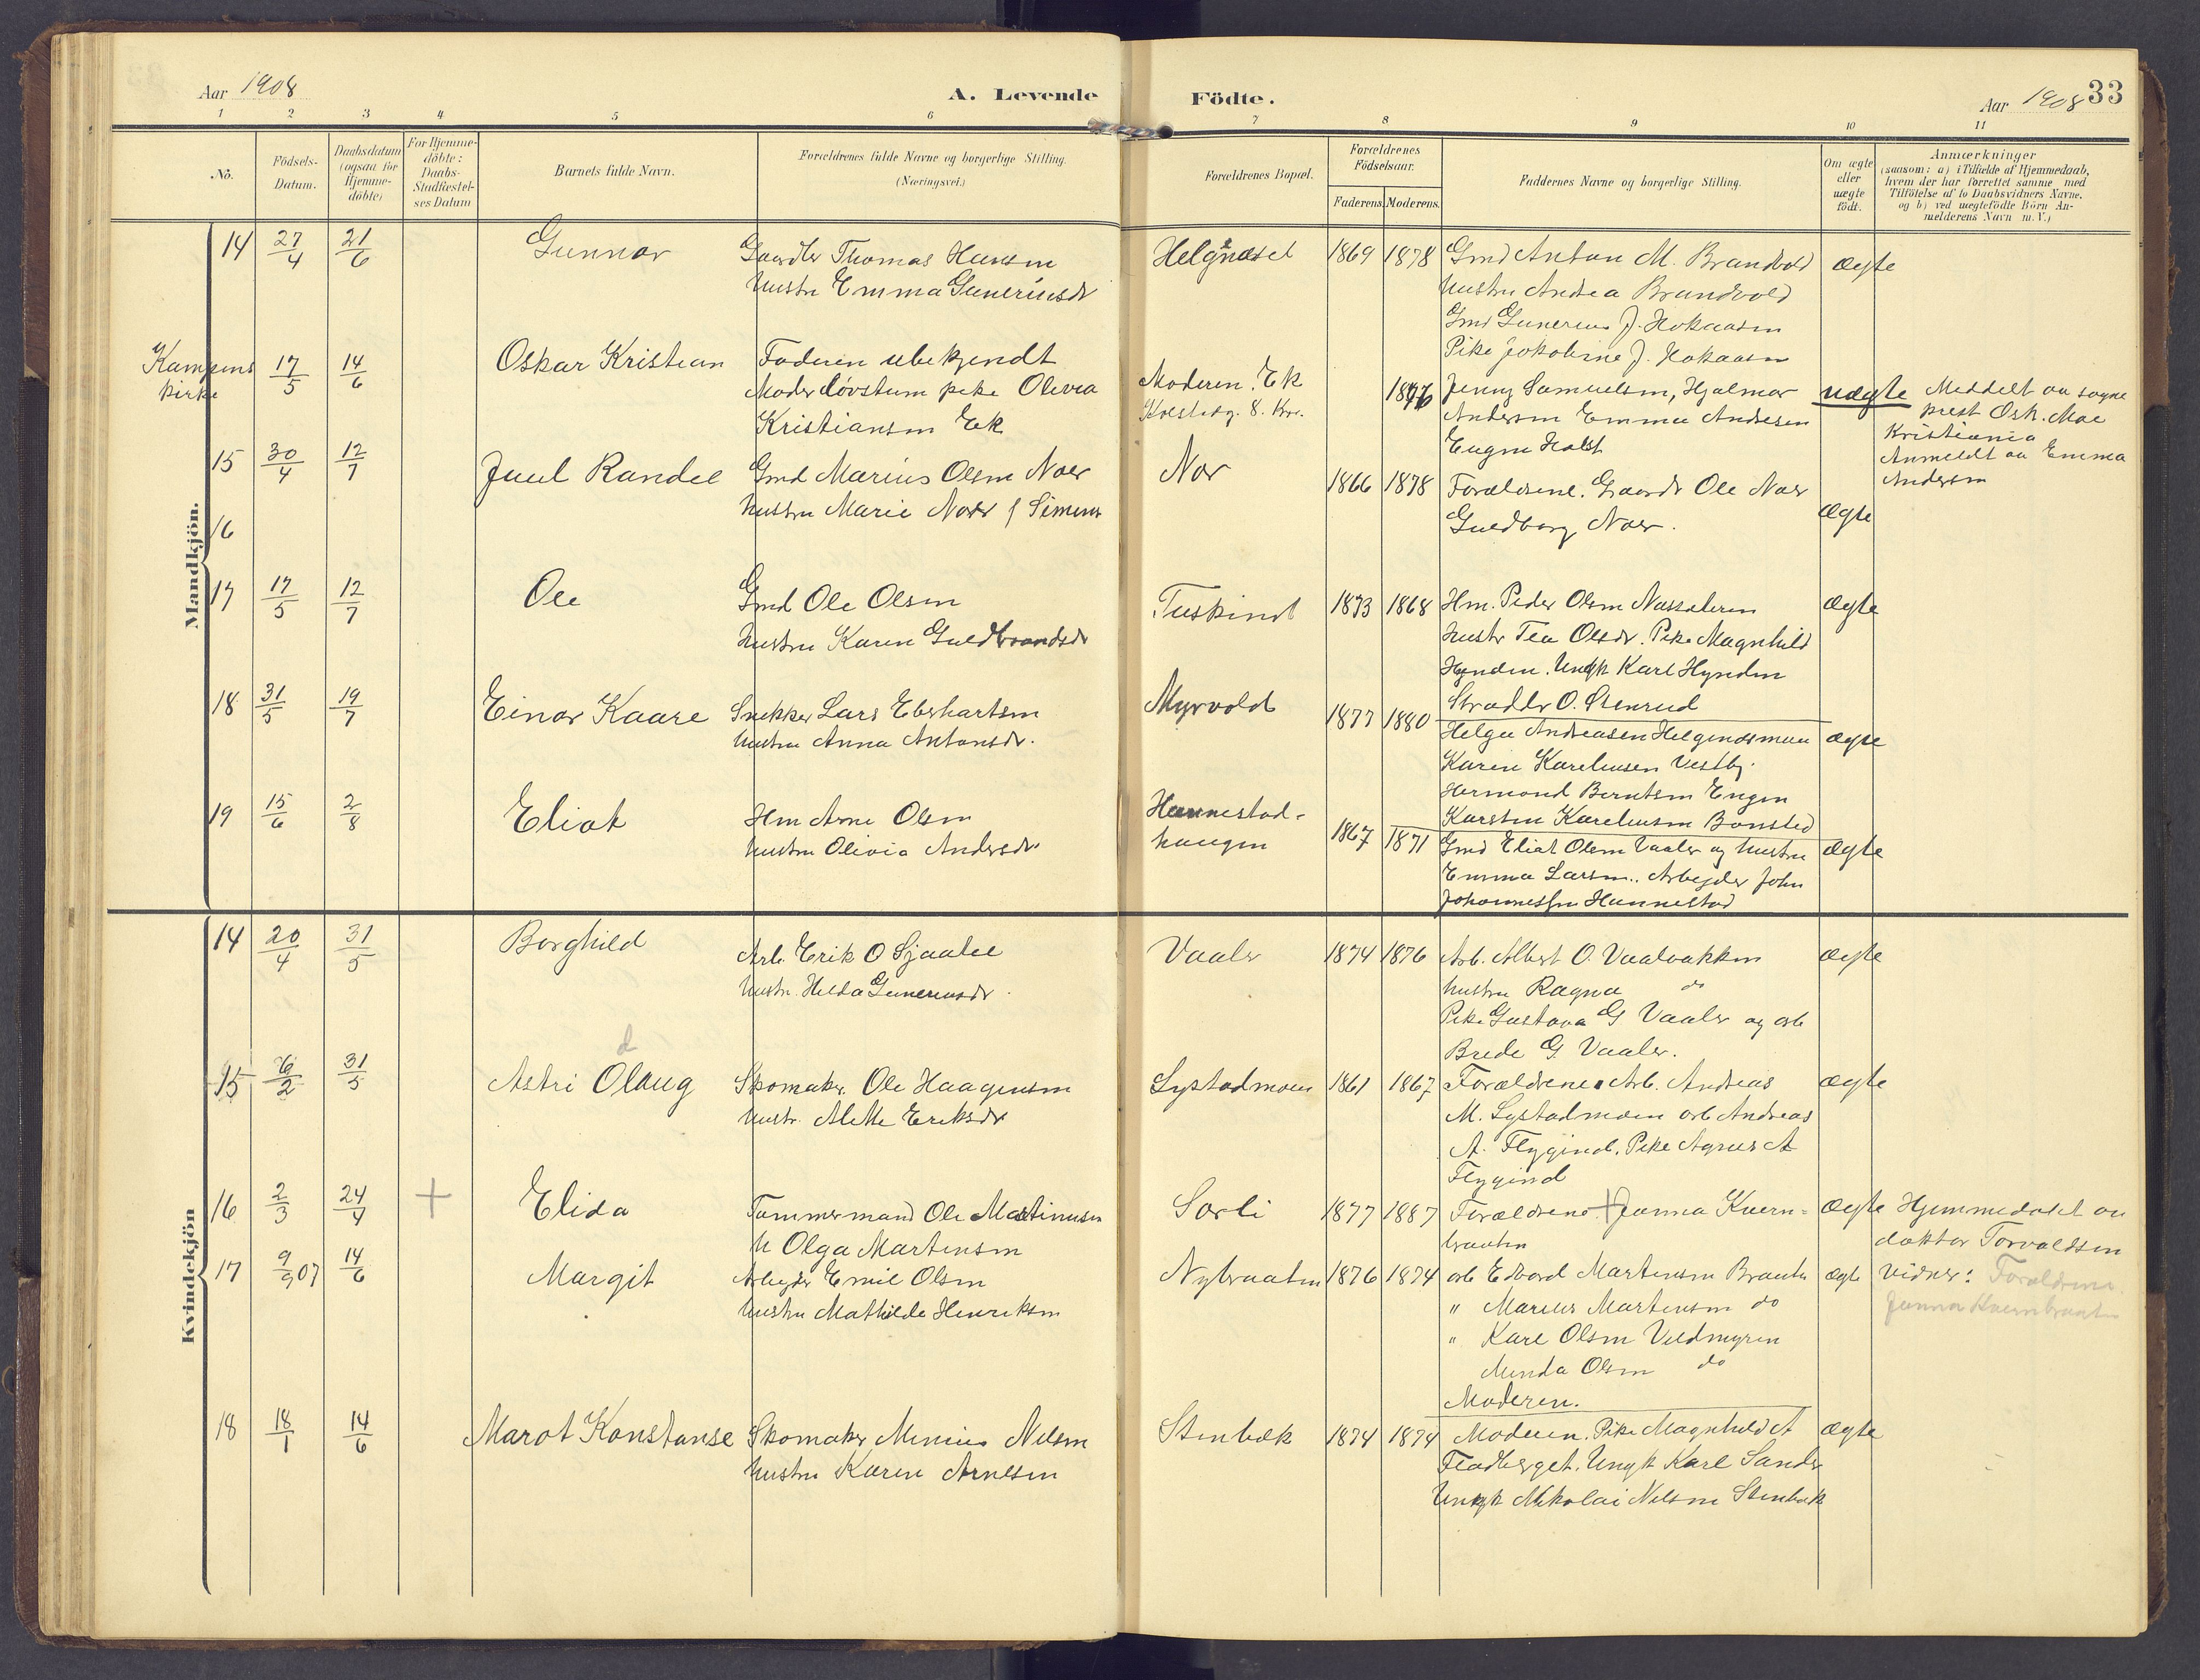 Aar 1908
A. Levende
Födte.
Aar 1908
33
1 2 3 4 5 6 7 8 9 10 11
No.
Födsels-
Datum.
Daabsdatum
(ogsaa för
Hjemme-
döbte)
For Hjemme-
döbte:
Daabs-
Stadfæstel-
ses Datum
Barnets fulde Navn.
Forældrenes fulde Navne og borgerlige Stilling.
(Næringsvei.)
Forældrenes Bopæl.
Forældrenes
Födselsaar.
Faderens. Moderens.
Faddernes Navne og borgerlige Stilling.
Om ægte
eller
uægte
födt.
Anmærkninger
(saasom: a) i Tilfælde af Hjemmedaab,
hvem der har forrettet samme med
Tilföielse af to Daabsvidners Navne,
og b) ved uegtefödte Börn An-
melderens Navn m.V.)
Mandkjön.
14 27/4 21/6 Gunnar
Thomas Hansen
hustru Emma Guneriusdr
Helgnæset 1869 1878
Gmd Anton M. Brandvold
hustru Andrea Brandvold
Gmd Gunerius J. Hokaasen
Pike Jokobine J. Hokaasen
ægte
Kampens
kirke
17/5 14/6 Oskar Kristian
Faderen ubekjendt
Moder døvstum pike Olivia
Kristiansen Ek
Moderen: Ek
1876
Jenny Samuelsen, Hjalmar
Andersen Emma Andresen
Eugen Holst
uægte
Meddelt av sogne
prest Osk. Moe
Kristiania
Anmeldt av Emma
Andersen
15 30/4 12/7 Juul Randel
Gmd Marius Olsen Noer
hustru Marie Noer f Simens
Nor 1866 1878
Forældrene. Gaardr Ole Noer
Guldborg Noer.
ægte
16
17 17/5 12/7 Ole
Gmd Ole Olsen
hustru Karen Guldbrandsdr
Tuskind 1873 1868
Hm. Peder Olsen
hustr Tea Olsdr. Pike Magnhild
Hynden. Ungk Karl Hynden
O. Stenrud
ægte
18 31/5 19/7 Einar Kaare
Snekker Lars Eberhartsen
hustru Anna Antonsdr.
Myrvold 1877 1880
Helge Andreasen Helgendsmoen
Karen Kareliusen Vestby.
Hermond Berntsen Engen
Karsten Kareliusen Bonsted
ægte
19 15/6 2/8 Eliot
Hm Arne Olsen
hustru Olivia Andersdr
Hannestad-
haugen
1867 1871
Gmd Eliot Olsen Vaaler og hustru
Emma Larsen. Arbejder John
Johannessen Hannestad
ægte
Kvindekjön
14 20/4 31/5 Borghild
Arb. Erik O Sjaatel
hustr. Hilda Guneriusdr.
Vaaler 1874 1876
Arb. Albert O. Vaalbakken
hustru Ragna do
Pike Gustava G Vaaler og arb
Brede G. Vaaler.
ægte
15 6/2 31/5 Astri d Olaug
Skomaker. Ole Haagensen
hustr. Alette Eriksdr
Systadmoen 1861 1867
Forældrene. Arb. Andreas
M. Systadmoen arb Andreas
A. Flygind. Pike Agnes A
Flygind
ægte
16 2/3 24/4 + Elida
Tømmermand Ole Martinusen
h Olga Martensen
Sorli 1877 1887
Forældrene + Janna Kvern-
braaten
ægte
Hjemmedøbt av
doktor Torvaldsen
vidner: Forældrene
Janna Kvernbraaten
17 9/9 07 14/6 Margit
Arbejder Emil Olsen
hustru Mathilde Henriksen
Nybraaten 1876 1874
arb Edvard Martensen Braaten
" Marius Martensen do
" Karl Olsen Veldmyren
Minda Olsen do
Moderen.
ægte
18 18/1 14/6 Marot Konstanse
Skomaker Minius Nilsen
hustru Karen Arnesen
Stenbæk 1874 1874
Moderen. Pike Magnhild A
Fladberget. Ungk Karl Sander
Ungk Nikolai Nilsen Stenbæk
ægte